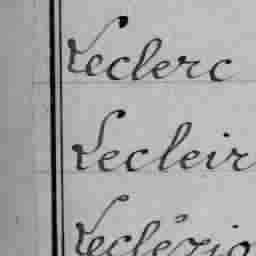 Leclerc
Lecleir
Leclézio